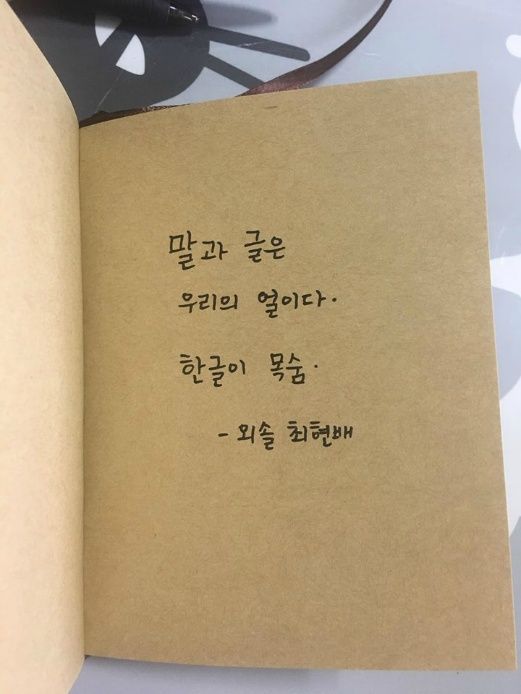 말과 글은
우리의 얼이다.
한글이 목숨.
- 외솔 최현배